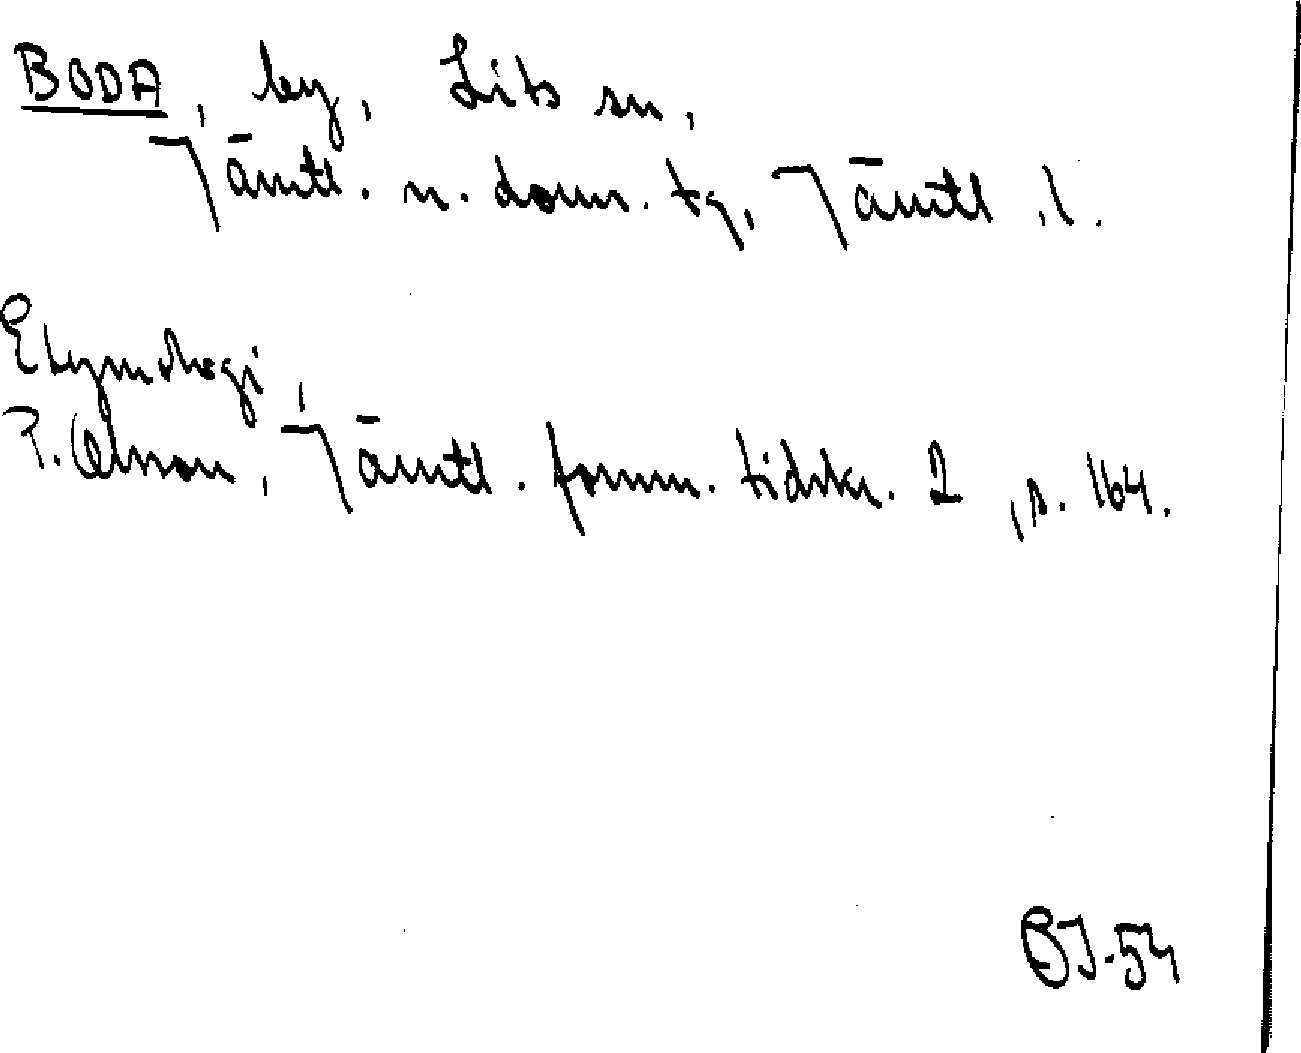 BODA, by, Lits sn,
Jämtl. n. doms. tg, Jämtl. l.
Etymologi,
P. Olsson, Jämtl. fornm. tidskr. 2, s. 164.
BJ-54